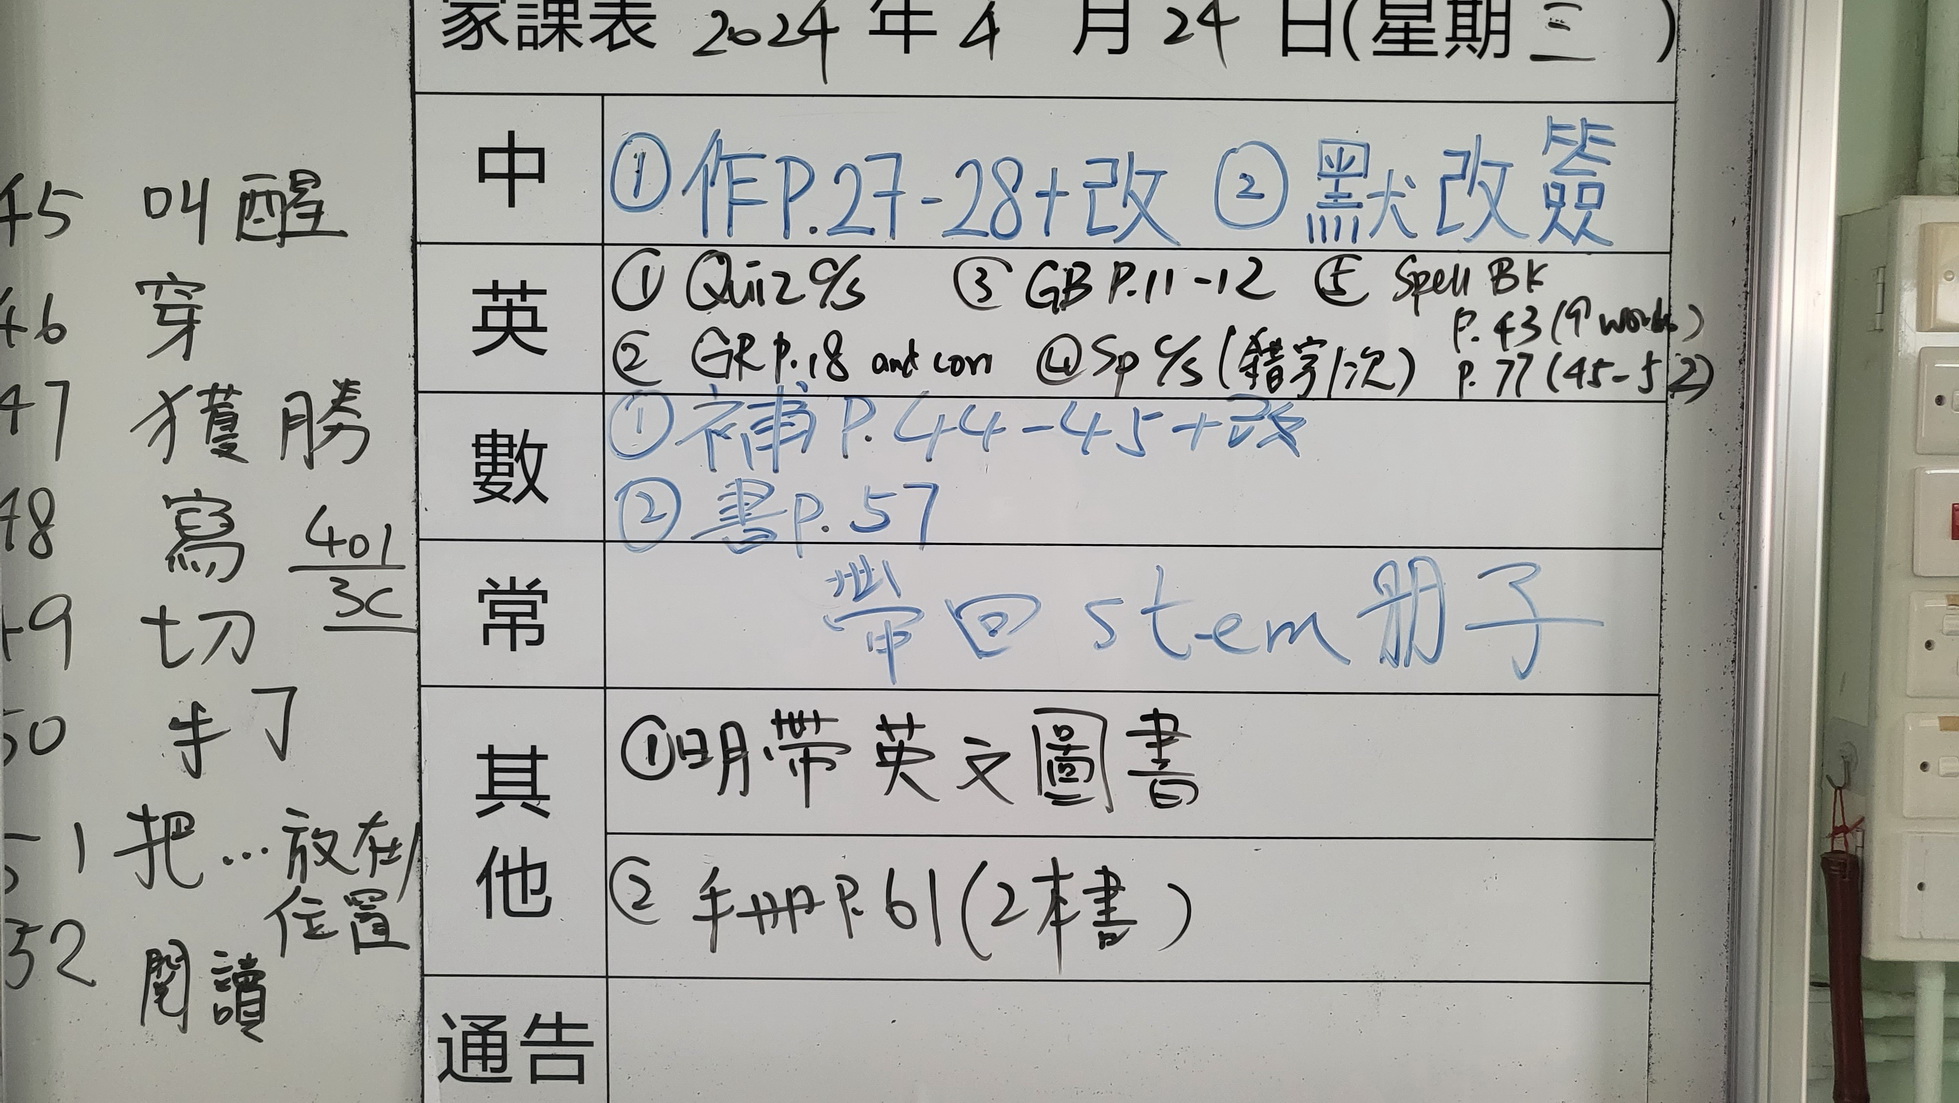 家課表 2024 年 4 月 24 日(星期三)
中
①作P.27-28+改 ②默改簽
英
① Quiz c/s ③ GB P.11-12 ⑤ Spell BK
P.43(9 words)
② GR P.18 and corr ④ Sp c/s (錯字/次) P.77(45-52)
數
①補P.44-45+改
②書P.57
常
帶回 stem 册子
其他
①明帶英文圖書
② 手册P.61(2本書)
通告
45 叫醒
46 穿
47 獲勝
48 寫
401
3C
49 切
50
51 把…放在
位置
52 閱讀